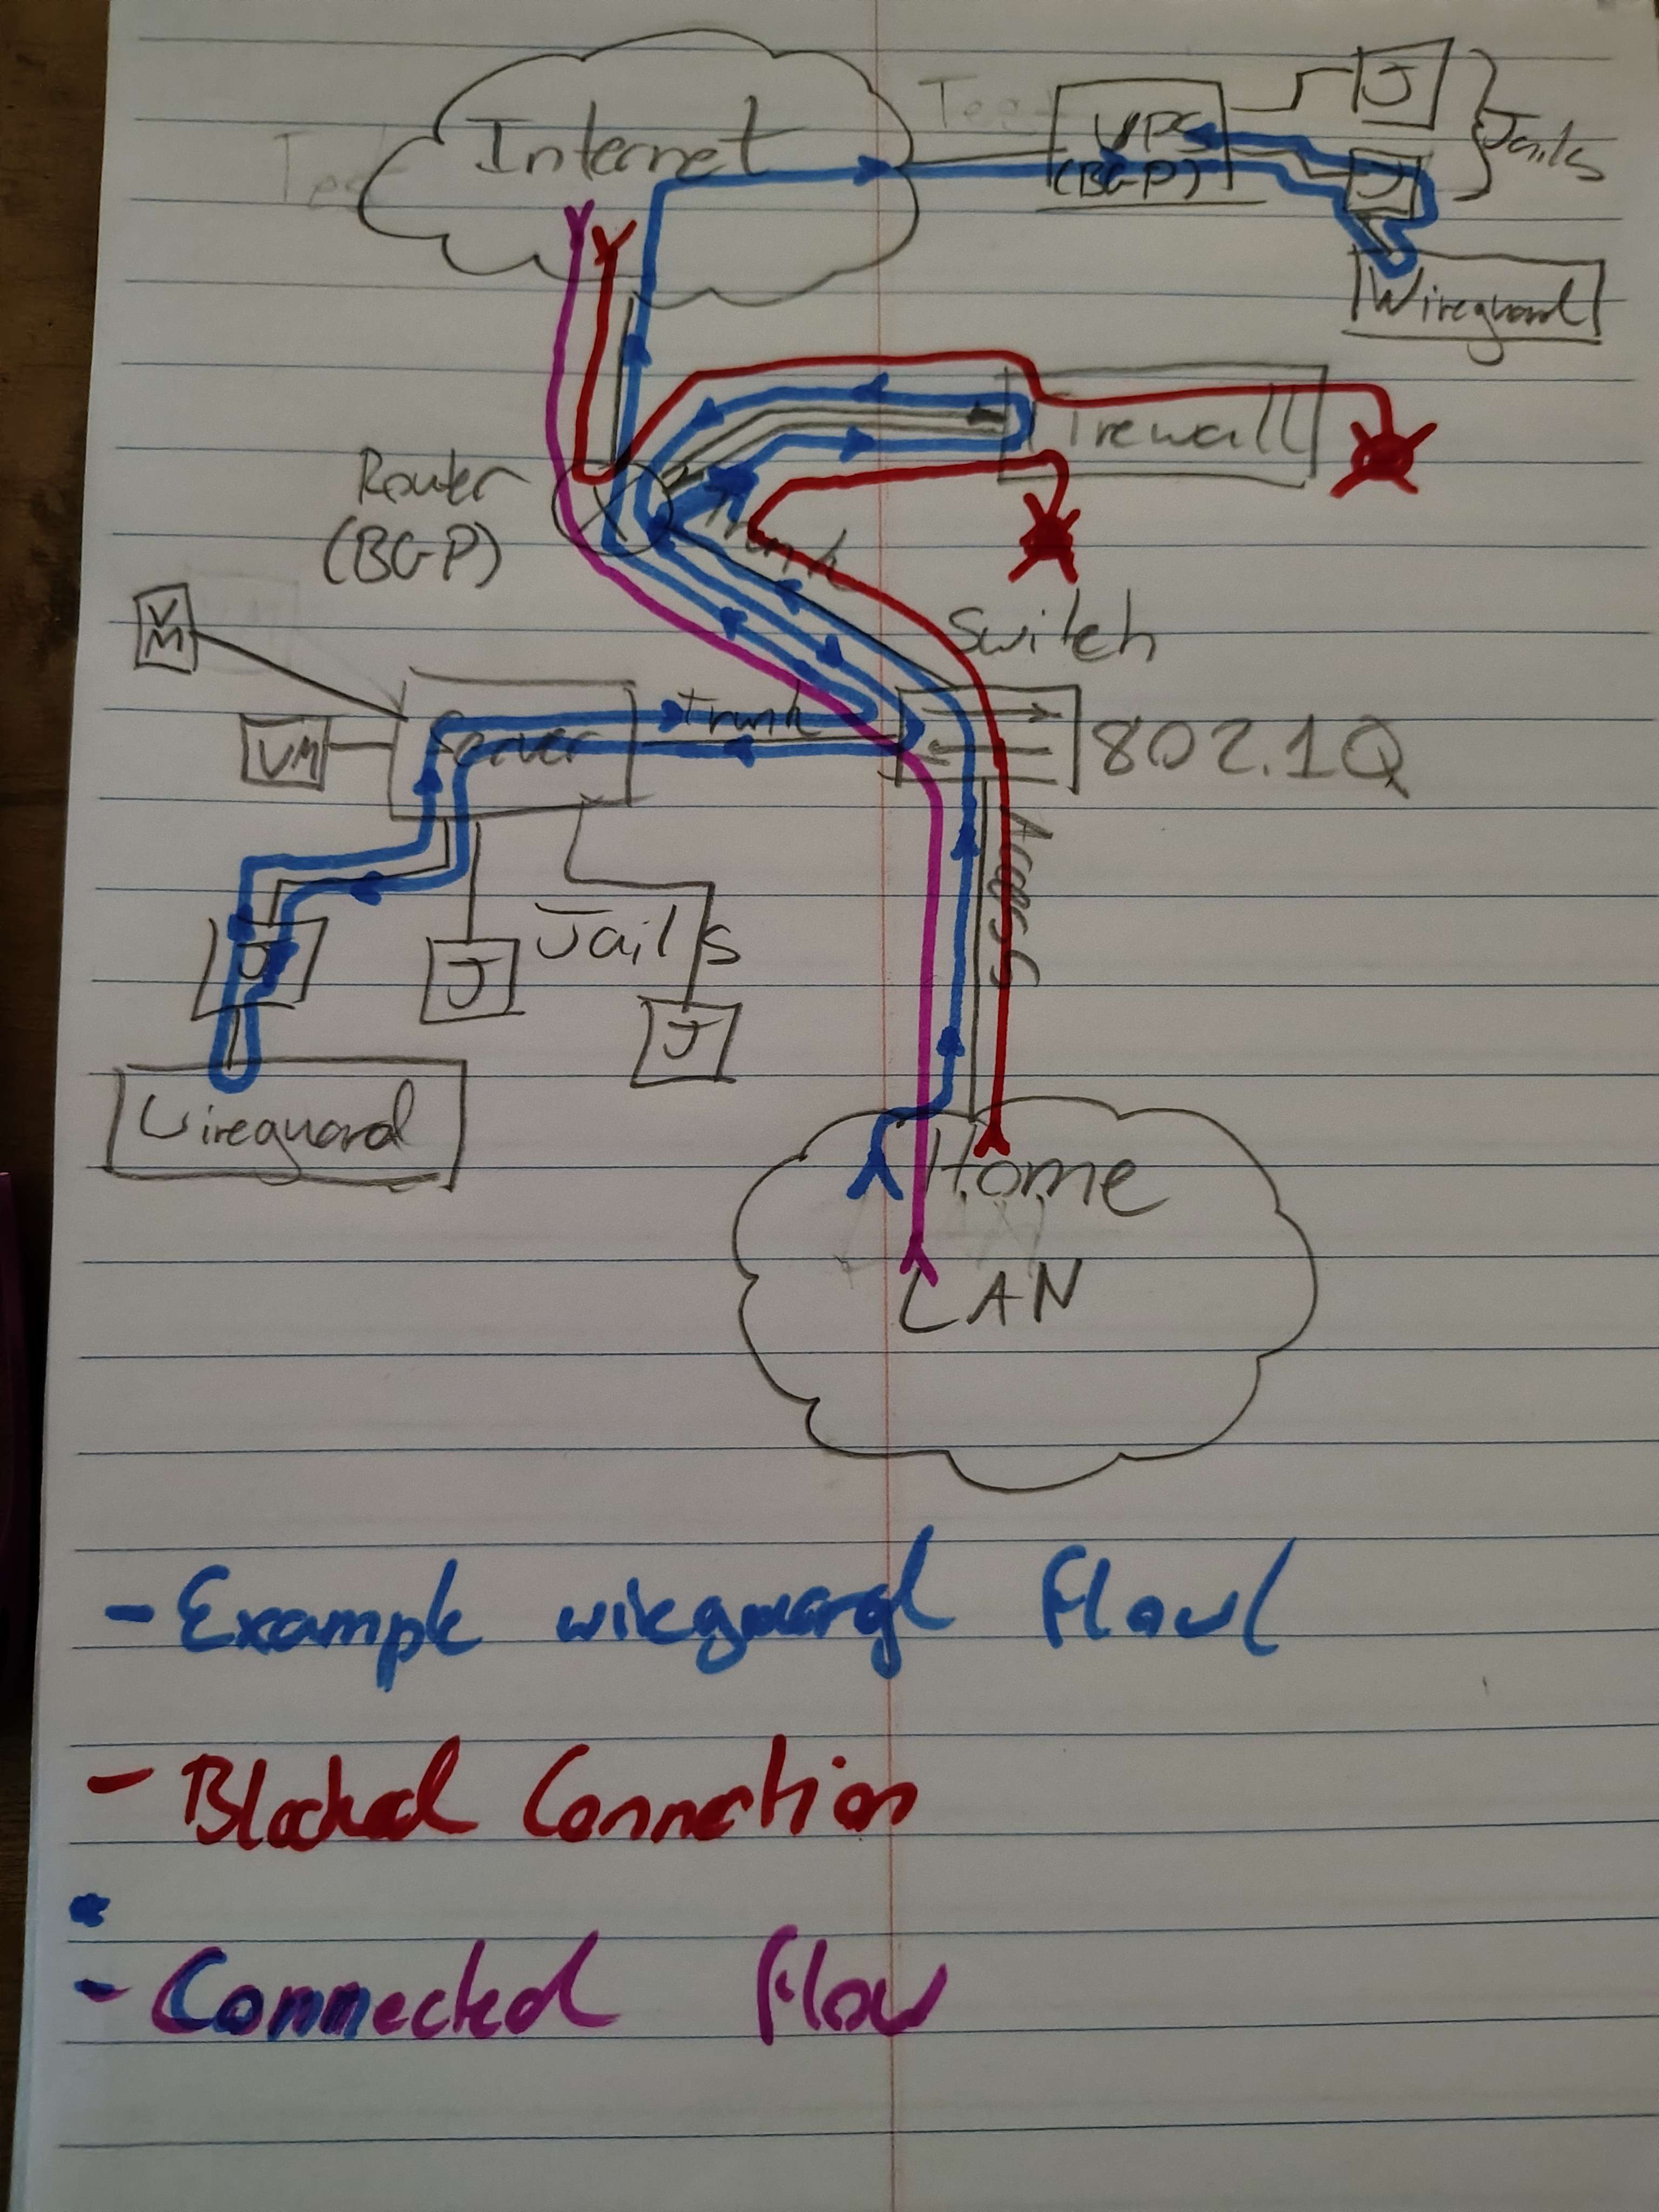 Internet
Test
Test
VPS
(BGP)
J
J
Jails
Wireguard
Firewall
Router
(BGP)
Trunk
Switch
802.1Q
VM
VM
Server
Trunk
Access
J
J
Jails
J
Wireguard
Home
LAN
- Example wireguard flow
- Blocked Connection
- Connected flow